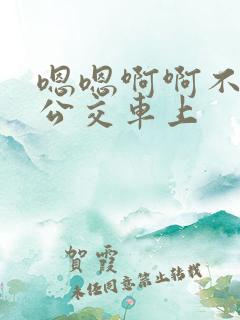 嗯嗯啊啊不
公交車上
賀霞
未任同意禁止转载